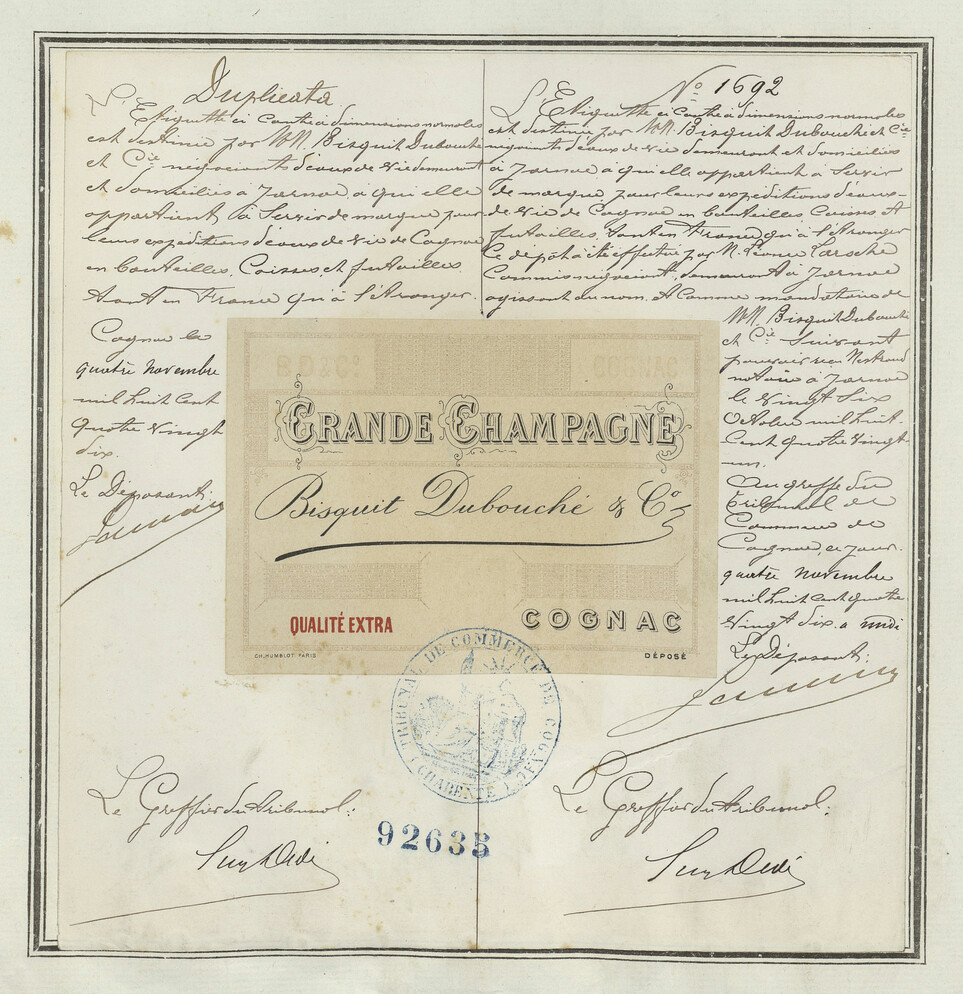 Duplicata
L'Etiquette ci contre à dimensions normales
est destinée par MM. Bisquit Dubouché
et Cie négociants d'eaux de vie demeurant
et domiciliés à Jarnac, à qui elle
appartient, à Servir de marque pour
leurs expéditions d'eaux de vie de Cognac
en bouteilles, Caisses et futailles,
tant en France qu'à l'étranger.
Cognac le
quatre novembre
mil huit cent
quatre vingt
dix.
Le Déposant:
No 1692
L'Etiquette ci contre à dimensions normales
est destinée par MM. Bisquit Dubouché et Cie
négociants d'eaux de vie demeurant et domiciliés
à Jarnac à qui elle appartient à Servir
de marque pour leurs expéditions d'eaux-
de-vie de Cognac en bouteilles, Caisses et
futailles, tant en France qu'à l'étranger
Ce dépôt a été effectué par M. Léonce
Commis négociant, demeurant à Jarnac
agissant au nom et Comme mandataire de
MM. Bisquit Dubouché
et Cie Suivant
pouvoir reçu
notaire à Jarnac
le vingt Six
Octobre mil huit
Cent quatre vingt
un.
Au greffe du
Tribunal de
Commerce de
Cognac, ce jour.
quatre novembre
mil huit cent quatre
vingt dix. a midi
Le Déposant:
GRANDE CHAMPAGNE
Bisquit Dubouché & Co
QUALITÉ EXTRA
COGNAC
CH. HUMBLOT. PARIS
DÉPOSÉ
TRIBUNAL DE COMMERCE DE COGNAC
(CHARENTE INFRE)
Le Greffier du tribunal:
Le Greffier du tribunal:
92635